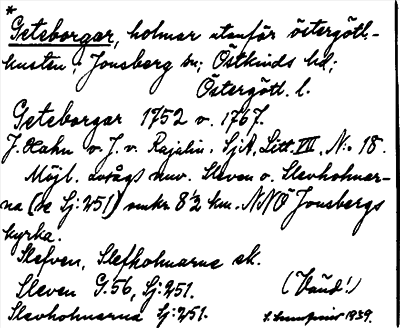 *
Geteborgar, holmar utanför östergöt.-
kusten i Jonsberg sn; Östkinds hd;
Östergötl. l.
Geteborgar 1752 o. 1767.
J. Hahn o. J. v. Rajalin, SjA, Litt. VIII, N:o 18.
Möjl. avsågs nuv. Sleven o. Slevholmar-
na (se Sj:251) omkr. 8½ km. NNÖ Jonsbergs
kyrka.
Slefven, Slefholmarne sk.
Sleven G:56, Sj:251. (Vänd!)
Slevholmarna Sj:251. 1939.